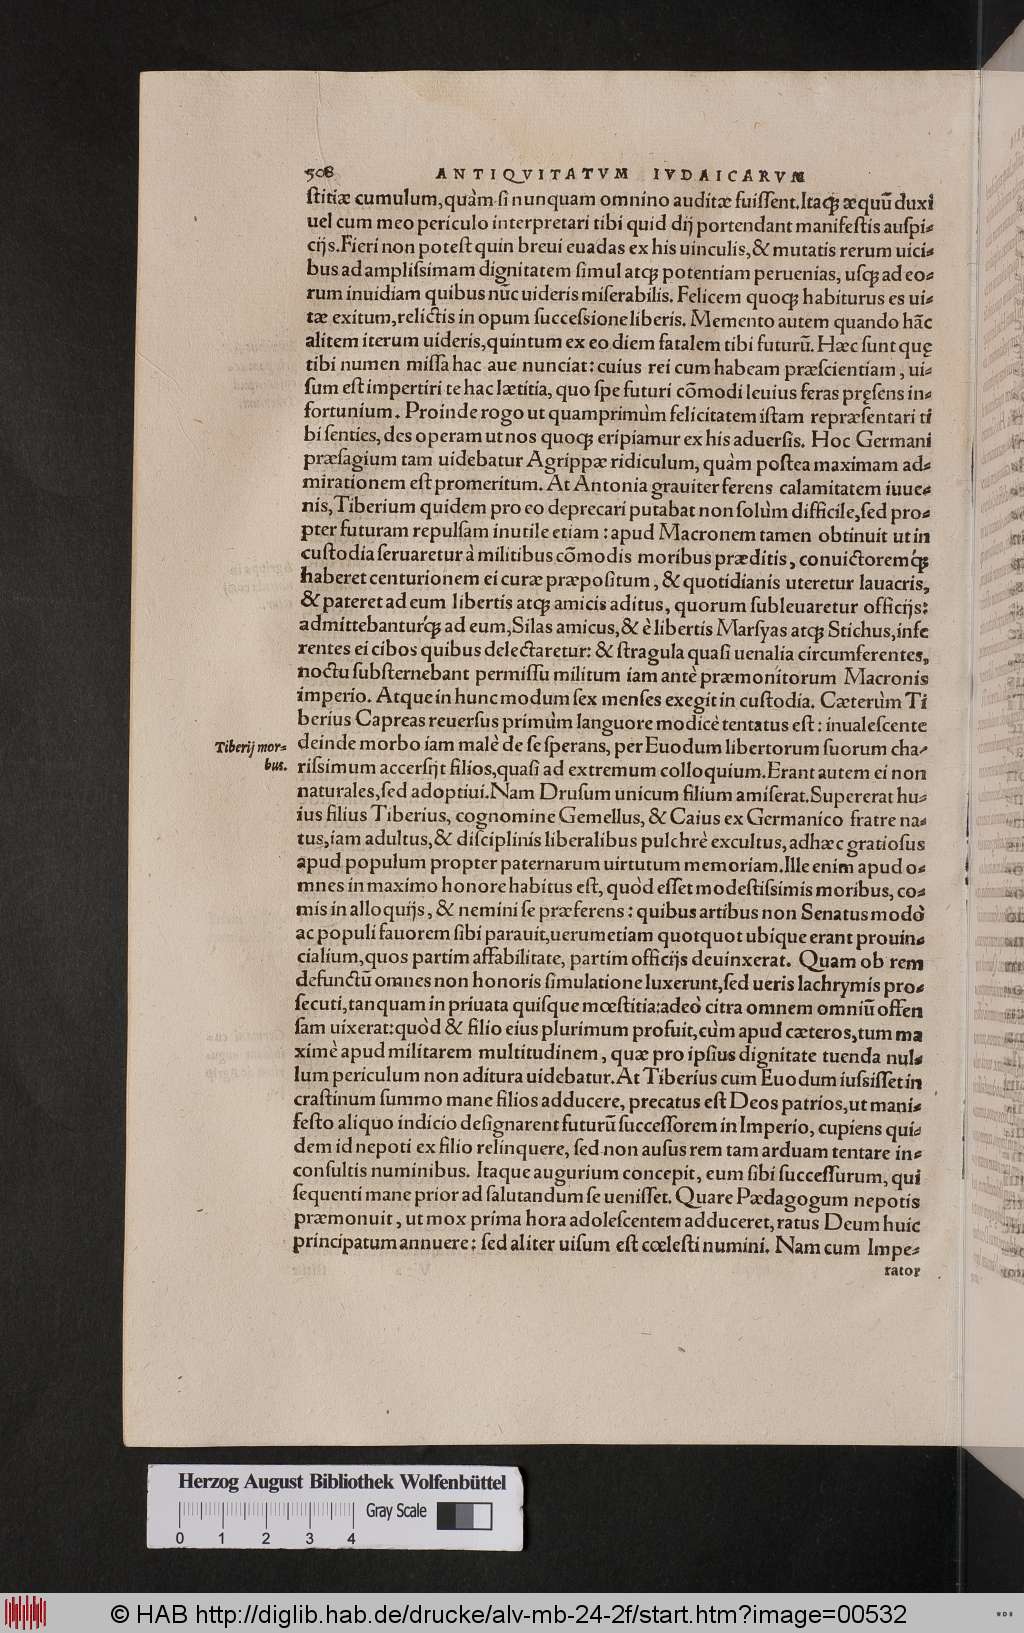 508 ANTIQVITATVM IVDAICARVM
ſtitiæ cumulum, quàm ſi nunquam omnino auditæ fuiſſent. Itaqꝫ æquũ duxi
uel cum meo periculo interpretari tibi quid dij portendant manifeſtis auſpi-
cijs. Fieri non poteſt quin breui euadas ex his uinculis, & mutatis rerum uici-
bus ad ampliſsimam dignitatem ſimul atqꝫ potentiam peruenias, uſqꝫ ad eo-
rum inuidiam quibus nũc uideris miſerabilis. Felicem quoqꝫ habiturus es ui-
tæ exitum, relictis in opum ſucceſsione liberis. Memento autem quando hãc
alitem iterum uideris, quintum ex eo diem fatalem tibi futurũ. Hæc ſunt quę
tibi numen miſſa hac aue nunciat: cuius rei cum habeam præſcientiam, ui-
ſum eſt impertiri te hac lætitia, quo ſpe futuri cõmodi leuius feras pręſens in-
fortunium. Proinde rogo ut quamprimùm felicitatem iſtam repræſentari ti
bi ſenties, des operam ut nos quoqꝫ eripiamur ex his aduerſis. Hoc Germani
præſagium tam uidebatur Agrippæ ridiculum, quàm poſtea maximam ad-
mirationem eſt promeritum. At Antonia grauiter ferens calamitatem iuue-
nis, Tiberium quidem pro eo deprecari putabat non ſolùm difficile, ſed pro-
pter futuram repulſam inutile etiam: apud Macronem tamen obtinuit ut in
cuſtodia ſeruaretur à militibus cõmodis moribus præditis, conuictoremq́ꝫ
haberet centurionem ei curæ præpoſitum, & quotidianis uteretur lauacris,
& pateret ad eum libertis atqꝫ amicis aditus, quorum ſubleuaretur officijs:
admittebanturq́ꝫ ad eum, Silas amicus, & è libertis Marſyas atqꝫ Stichus, infe
rentes ei cibos quibus delectaretur: & ſtragula quaſi uenalia circumferentes,
noctu ſubſternebant permiſſu militum iam antè præmonitorum Macronis
imperio. Atque in hunc modum ſex menſes exegit in cuſtodia. Cæterùm Ti
berius Capreas reuerſus primùm languore modicè tentatus eſt: inualeſcente
Tiberij mor-
bus.
deinde morbo iam malè de ſe ſperans, per Euodum libertorum ſuorum cha-
riſsimum accerſijt filios, quaſi ad extremum colloquium. Erant autem ei non
naturales, ſed adoptiui. Nam Druſum unicum filium amiſerat. Supererat hu-
ius filius Tiberius, cognomine Gemellus, & Caius ex Germanico fratre na-
tus, iam adultus, & diſciplinis liberalibus pulchrè excultus, adhæc gratioſus
apud populum propter paternarum uirtutum memoriam. Ille enim apud o-
mnes in maximo honore habitus eſt, quòd eſſet modeſtiſsimis moribus, co-
mis in alloquijs, & nemini ſe præferens: quibus artibus non Senatus modò
ac populi fauorem ſibi parauit, uerumetiam quotquot ubique erant prouin-
cialium, quos partim affabilitate, partim officijs deuinxerat. Quam ob rem
defunctũ omnes non honoris ſimulatione luxerunt, ſed ueris lachrymis pro-
ſecuti, tanquam in priuata quiſque mœſtitia: adeò citra omnem omniũ offen
ſam uixerat: quòd & filio eius plurimum profuit, cùm apud cæteros, tum ma
ximè apud militarem multitudinem, quæ pro ipſius dignitate tuenda nul-
lum periculum non aditura uidebatur. At Tiberius cum Euodum iuſsiſſet in
craſtinum ſummo mane filios adducere, precatus eſt Deos patrios, ut mani-
feſto aliquo indicio deſignarent futurũ ſucceſſorem in Imperio, cupiens qui-
dem id nepoti ex filio relinquere, ſed non auſus rem tam arduam tentare in-
conſultis numinibus. Itaque augurium concepit, eum ſibi ſucceſſurum, qui
ſequenti mane prior ad ſalutandum ſe ueniſſet. Quare Pædagogum nepotis
præmonuit, ut mox prima hora adoleſcentem adduceret, ratus Deum huic
principatum annuere: ſed aliter uiſum eſt cœleſti numini. Nam cum Impe-
rator
Herzog August Bibliothek Wolfenbüttel
Gray Scale
0 1 2 3 4
© HAB http://diglib.hab.de/drucke/alv-mb-24-2f/start.htm?image=00532